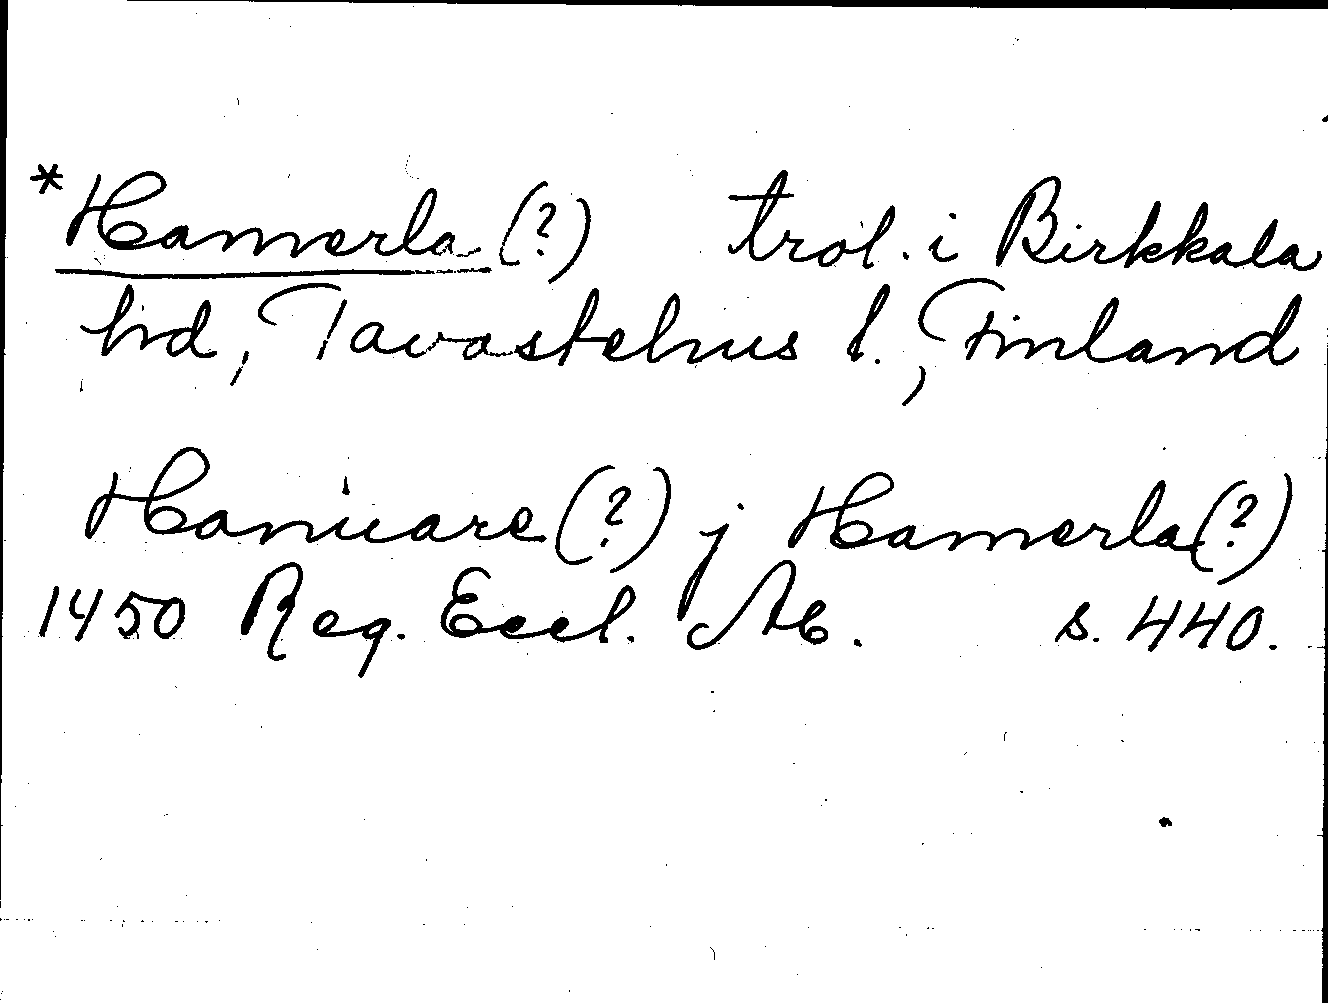 *Hamerla (?) trol. i Birkkala
hd, Tavastehus l., Finland
Haniuare (?) j Hamerla (?)
1450 Reg. Eccl. Ab. s. 440.